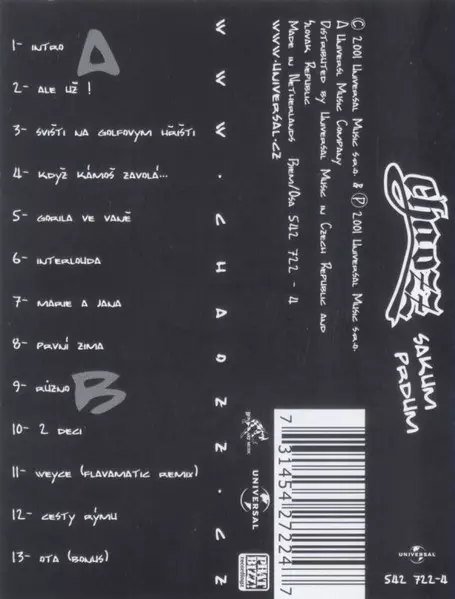 A
1- INTRO
2- ALE UŽ !
3- SVIŠTI NA GOLFOVYM HŘIŠTI
4- KDYŽ KÁMOŠ ZAVOLÁ...
5- GORILA VE VANĚ
6- INTERLOUDA
7- MARIE A JANA
8- PRVNÍ ZIMA
B
9- RŮZNO
10- 2 DECI
11- WEYCE (FLAVAMATIC REMIX)
12- CESTY RÝMU
13- OTA (BONUS)
WWW.CHAOZZ.CZ
© 2001 Universal Music s.r.o. & ℗ 2001 Universal Music s.r.o.
A Universl Music Company
Distributed by Universal Music in Czech Republic and
Slovak Republic
Made in Netherlands Biem/Osa 542 722 - 4
www.universal.cz
UNIVERSAL
PHAT
BUZZ!
recordings
7 31454 27224 7
Chaozz
SAKUM
PRDUM
UNIVERSAL
542 722-4